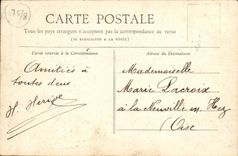 75/8
CARTE POSTALE
Tous les pays étrangers n'acceptent pas la correspondance au verso
(SE RENSEIGNER A LA POSTE)
Partie réservée à la Correspondance
Adresse du Destinataire
Amitiés à
toutes deux
H.
Mademoiselle
Marie Lacroix
à la Neuville en Hez
Oise